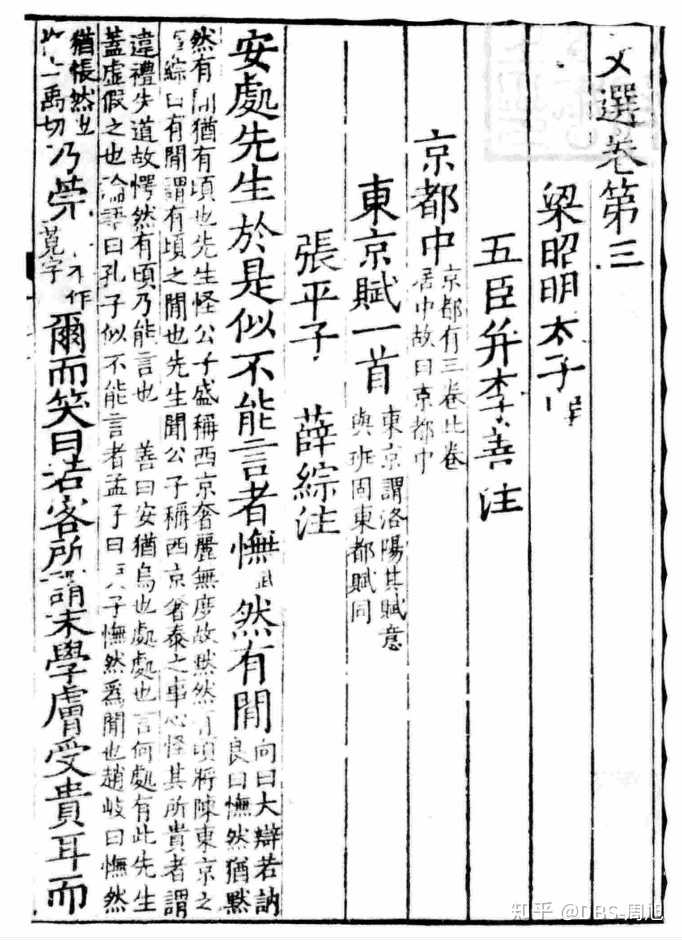 文選卷第三
梁昭明太子
五臣并李善注
京都中
京都有三卷此卷
居中故曰京都中
東京賦一首
東京謂洛陽其賦意
與班固東都賦同
張平子 薛綜注
安處先生於是似不能言者憮
然有閒
向曰大辯若訥
良曰憮然猶默
然有閒猶有頃也先生怪公子盛稱西京奢麗無度故默然有頃將陳東京之
綜曰有閒謂有頃之閒也先生聞公子稱西京奢泰之事心怪其所貴者謂
違禮失道故愕然有頃乃能言也 善曰安猶烏也處處也言何處有此先生
蓋虛假之也論語曰孔子似不能言者孟子曰子憮然爲閒也趙岐曰憮然
猶悵然也
禹切
乃莞
作
莧字
爾而笑曰若客所謂末學膚受貴耳而
知乎